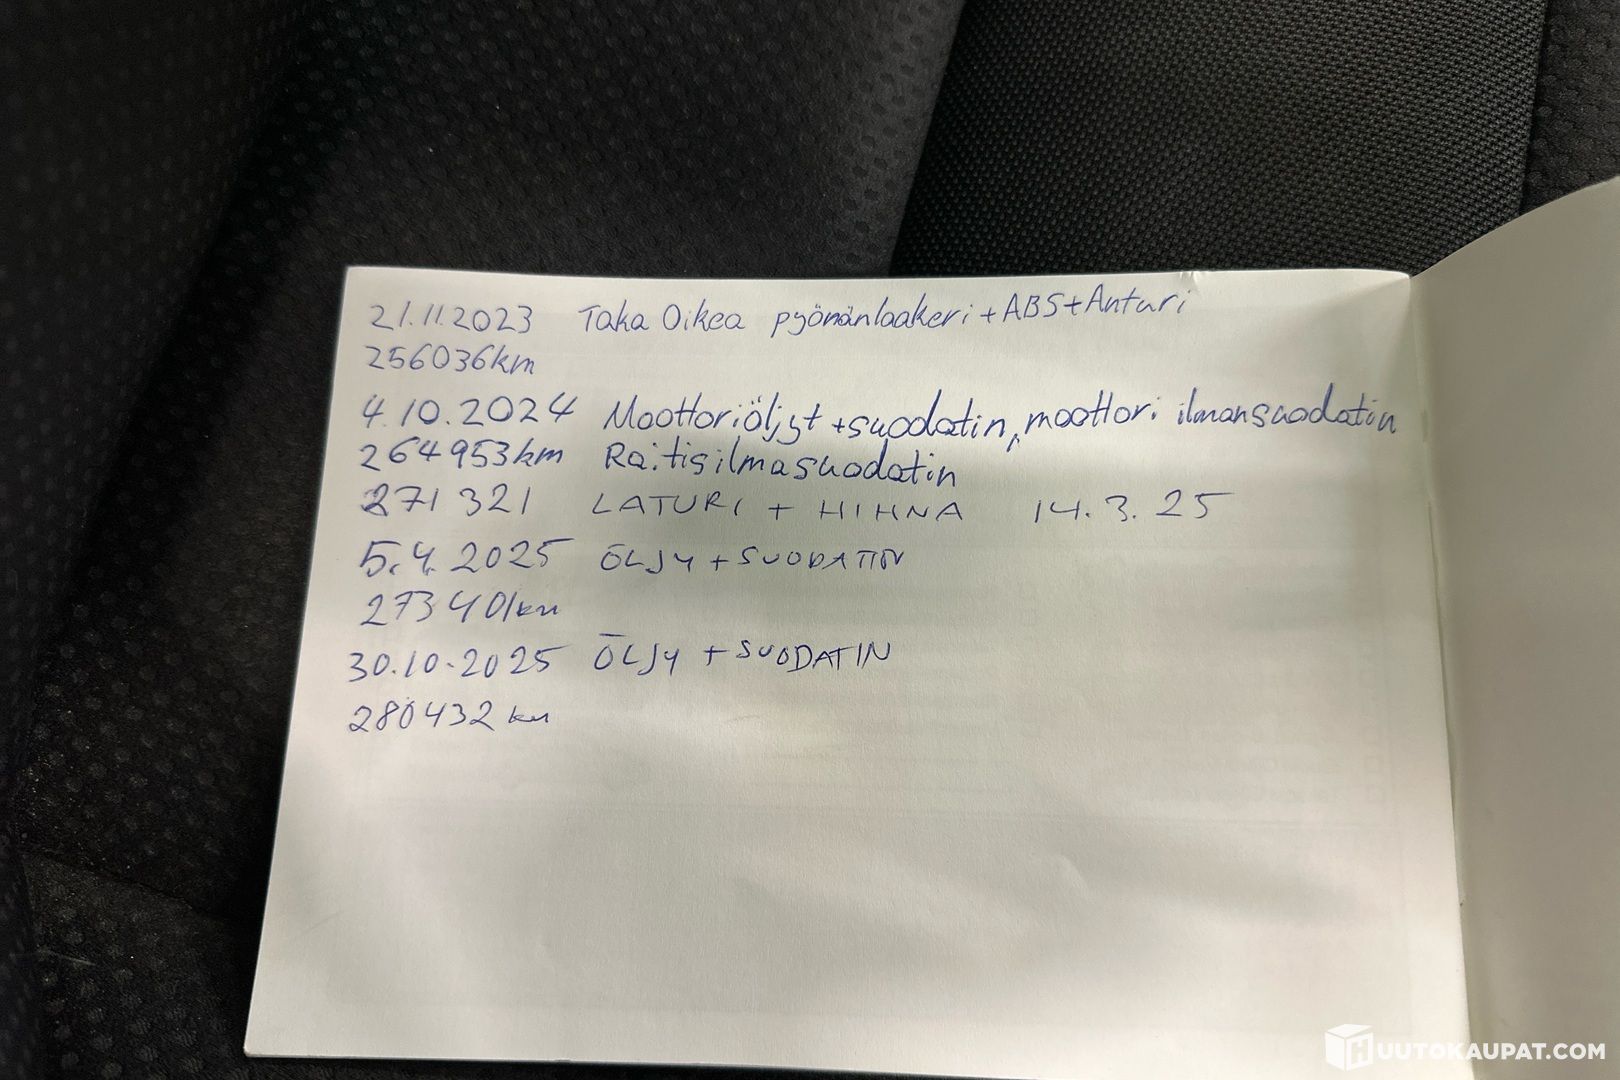 21.11.2023 Taka Oikea pyöränlaakeri + ABS + Anturi
256036km
4.10.2024 Moottoriöljyt + suodatin, moottori ilmansuodatin
264953km Raitisilmasuodatin
271321 LATURI + HIHNA 14.3.25
5.4.2025 ÖLJY + SUODATIN
273401km
30.10.2025 ÖLJY + SUODATIN
280432 km
HUUTOKAUPAT.COM